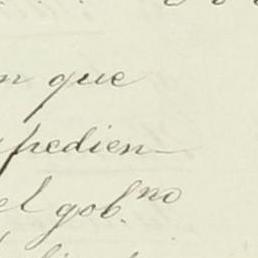 n que
pedien
el gob.no